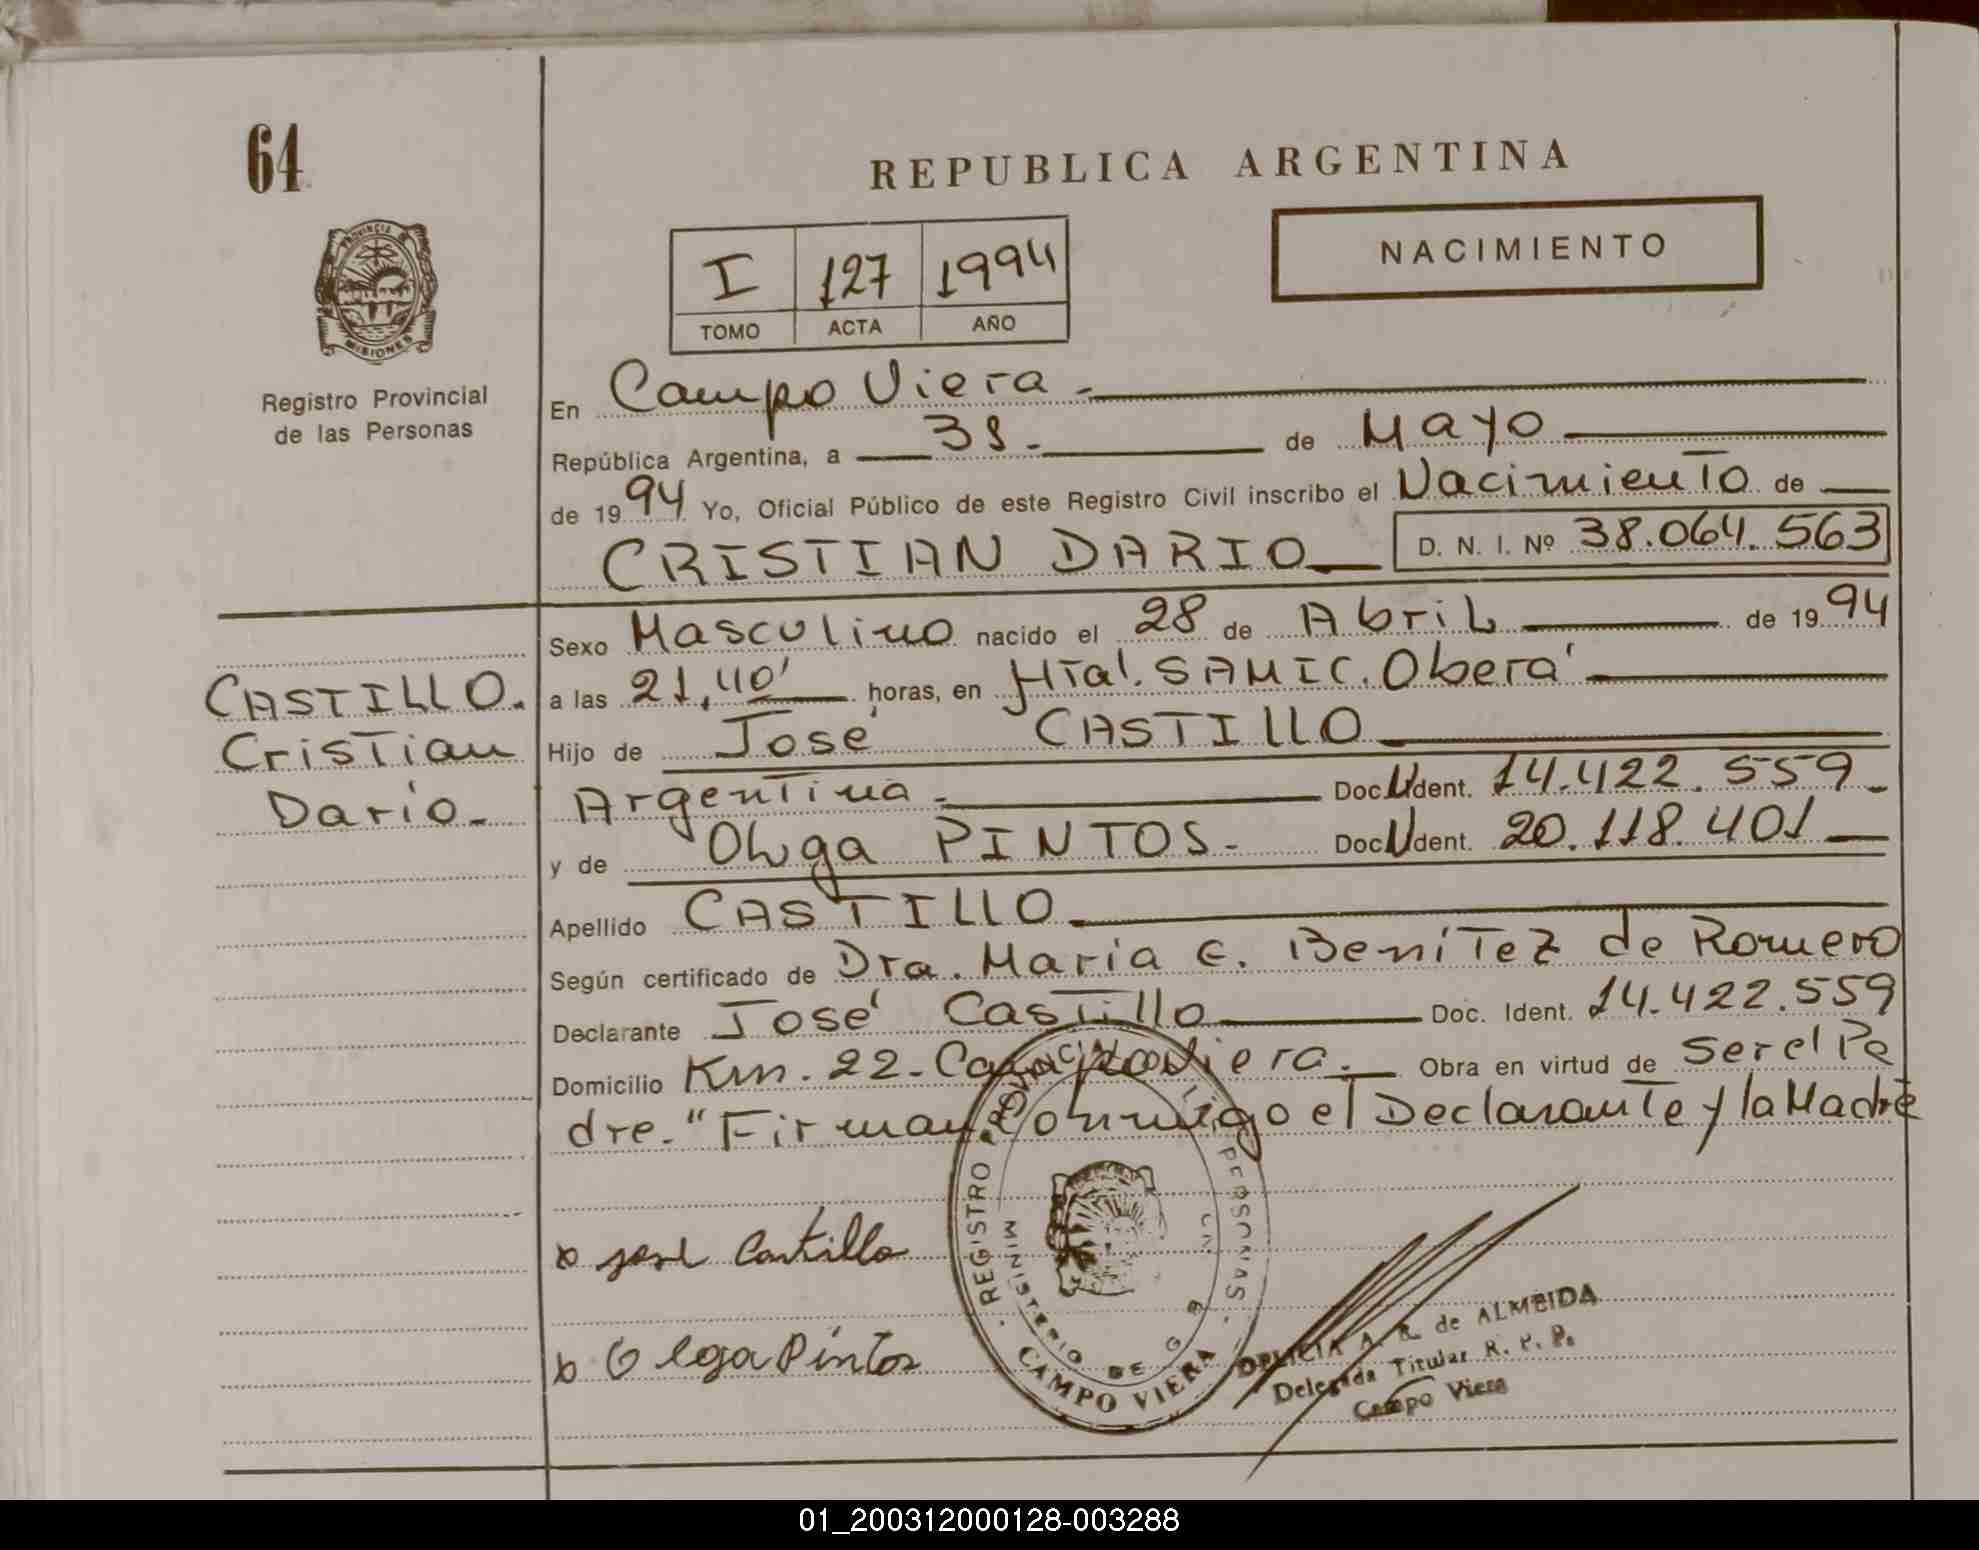 64
REPUBLICA ARGENTINA
NACIMIENTO
I 127 1994
TOMO ACTA AÑO
PROVINCIA DE
MISIONES
Registro Provincial
de las Personas
En Campo Viera.-
República Argentina, a 31.- de Mayo
de 1994 Yo, Oficial Público de este Registro Civil inscribo el Nacimiento de
CRISTIAN DARIO D. N. I. Nº 38.064.563
Sexo Masculino nacido el 28 de Abril de 1994
CASTILLO.
Cristian
Dario.-
a las 21,40' horas, en Htal. SAMIC. Oberá
Hijo de José CASTILLO
Argentina.- Doc.U dent. 14.422.559.-
y de Olga PINTOS.- Doc U dent. 20.118.401
Apellido CASTILLO
Según certificado de Dra. Maria E. Benítez de Romero
Declarante José Castillo Doc. Ident. 14.422.559
Domicilio Km. 22.- Campo Viera.- Obra en virtud de Ser el Pa
dre.- "Firman Conmigo el Declarante y la Madre
José Castillo
Olga Pintos
REGISTRO PROVINCIAL PERSONAS
MINISTERIO DE G
CAMPO VIERA
DELICIA A. R. de ALMEIDA
Delegada Titular R. P. P.
Campo Viera
01_200312000128-003288